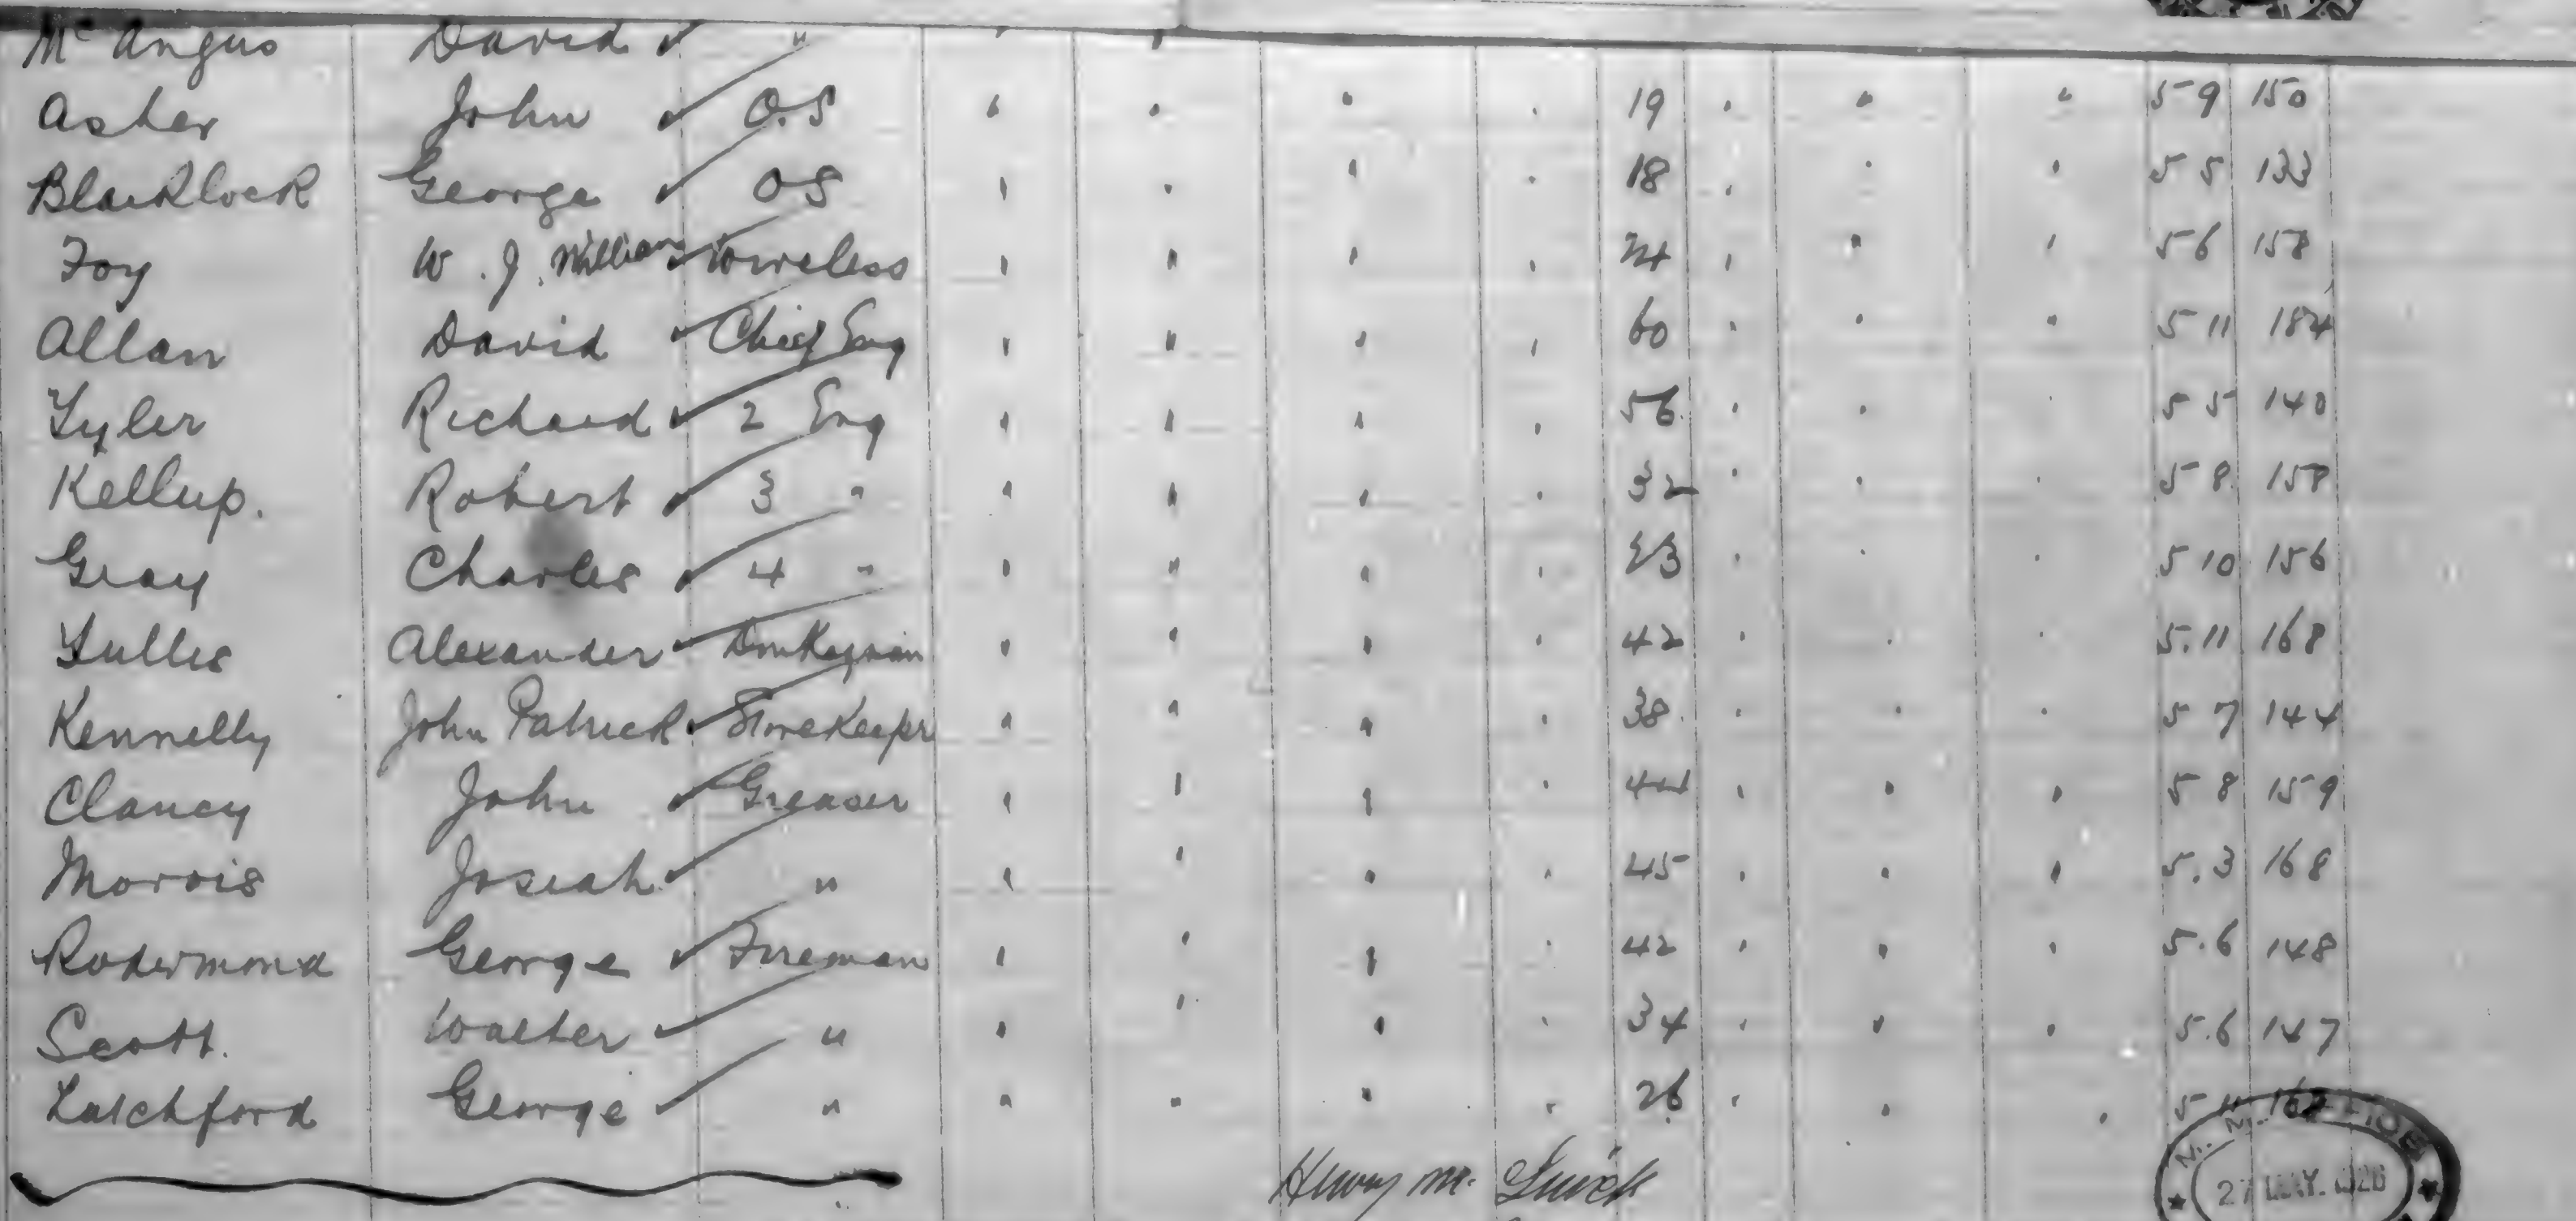 Mc Angus David "
Asher John O.S 19 5 9 150
Blacklock George OS 18 5 5 133
Foy W. J. William Wireless 24 5 6 158
Allan David Chief Eng 60 5 11 184
Tyler Richard 2 Eng 56 5 5 140
Kellup. Robert 3 " 32 5 8 158
Gray Charles 4 " 23 5 10 156
Tullis Alexander Donkeyman 42 5.11 168
Kennelly John Patrick StoreKeeper 38 5 7 144
Clancy John Greaser 44 5 8 159
Morris Josiah " 45 5.3 168
Rodermond George Fireman 42 5.6 148
Scott. Walter " 34 5.6 147
Latchford George " 26 5 11
Henry M.
27 MAY. 1926